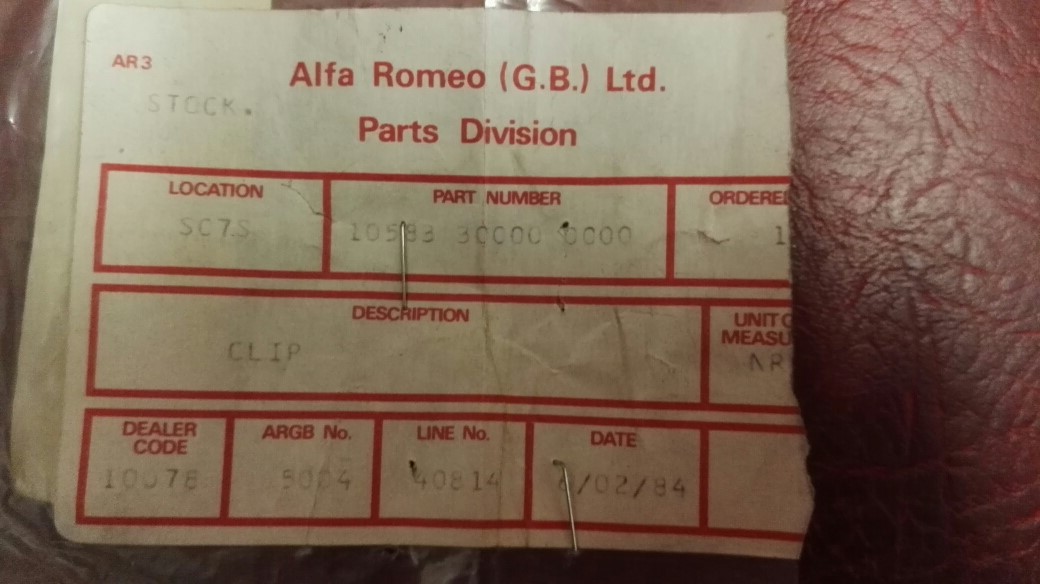 AR3
Alfa Romeo (G.B.) Ltd.
STOCK.
Parts Division
LOCATION PART NUMBER ORDERED
SC7S 10583 30000 0000 1
DESCRIPTION UNIT O
MEASU
CLIP NR
DEALER CODE ARGB No. LINE No. DATE
10078 5004 40814 /02/84